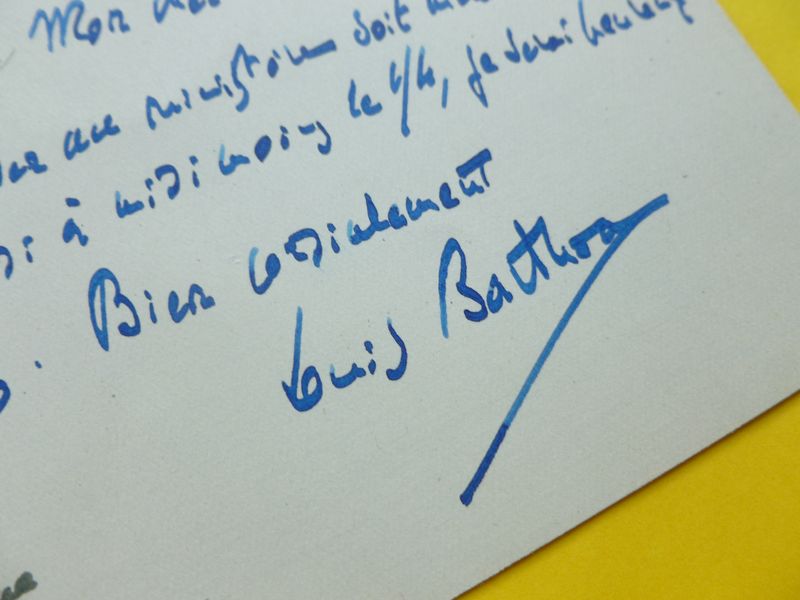 Mon
au ministère soit
à midi moins le 1/4, je serai heureux
Bien cordialement
Louis Barthou